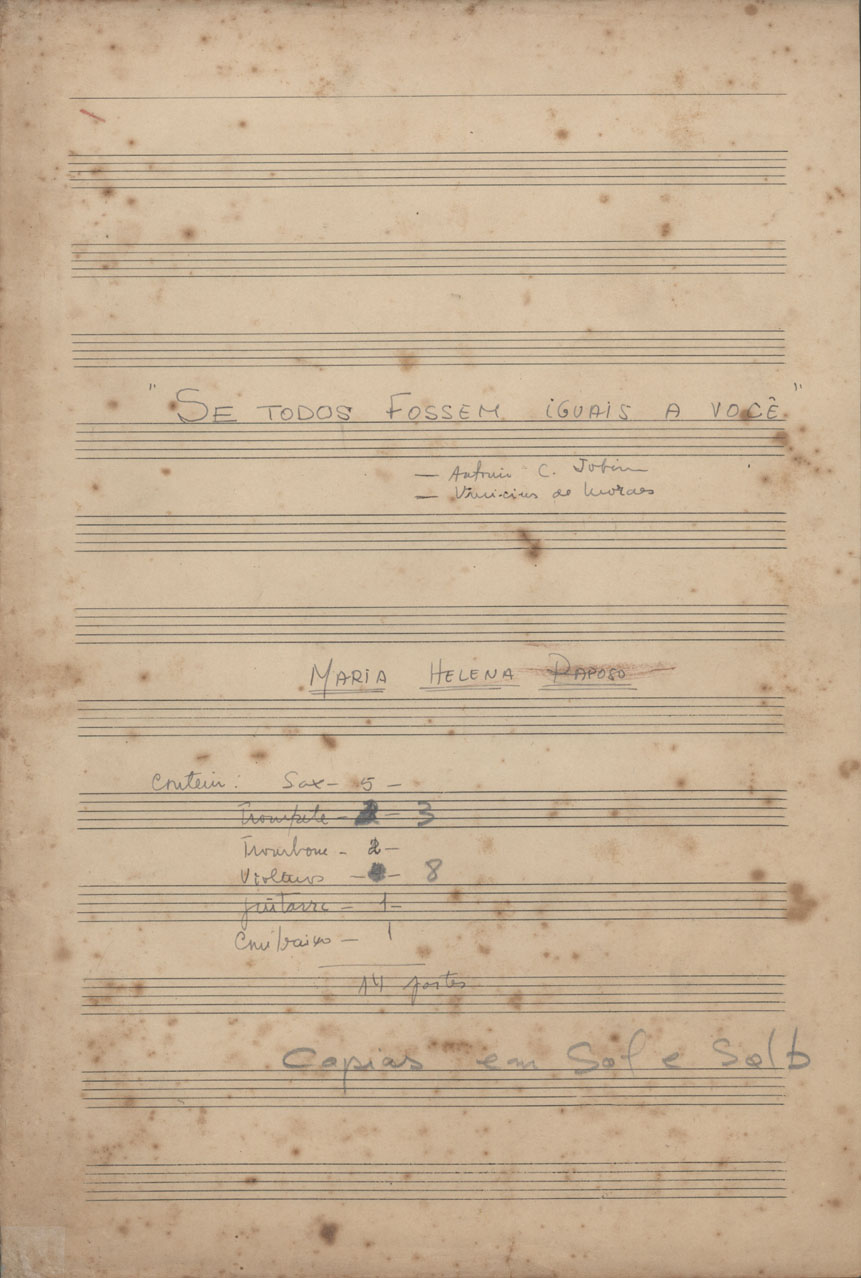 "SE TODOS FOSSEM iGUAiS A VOCÊ"
— Antonio C. Jobim
— Vinicius de Moraes
MARiA HELENA RAPOSO
Contem: Sax – 5 –
Trompete – – 3
Trombone – 2 –
Violinos – – 8
guitarra – 1 –
Contrabaixo – 1
14 partes
Copias em Sol e Solb